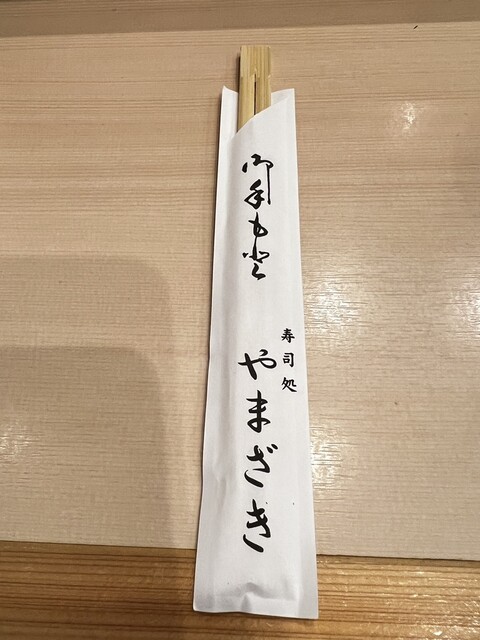 御手もと
寿司処
やまざき